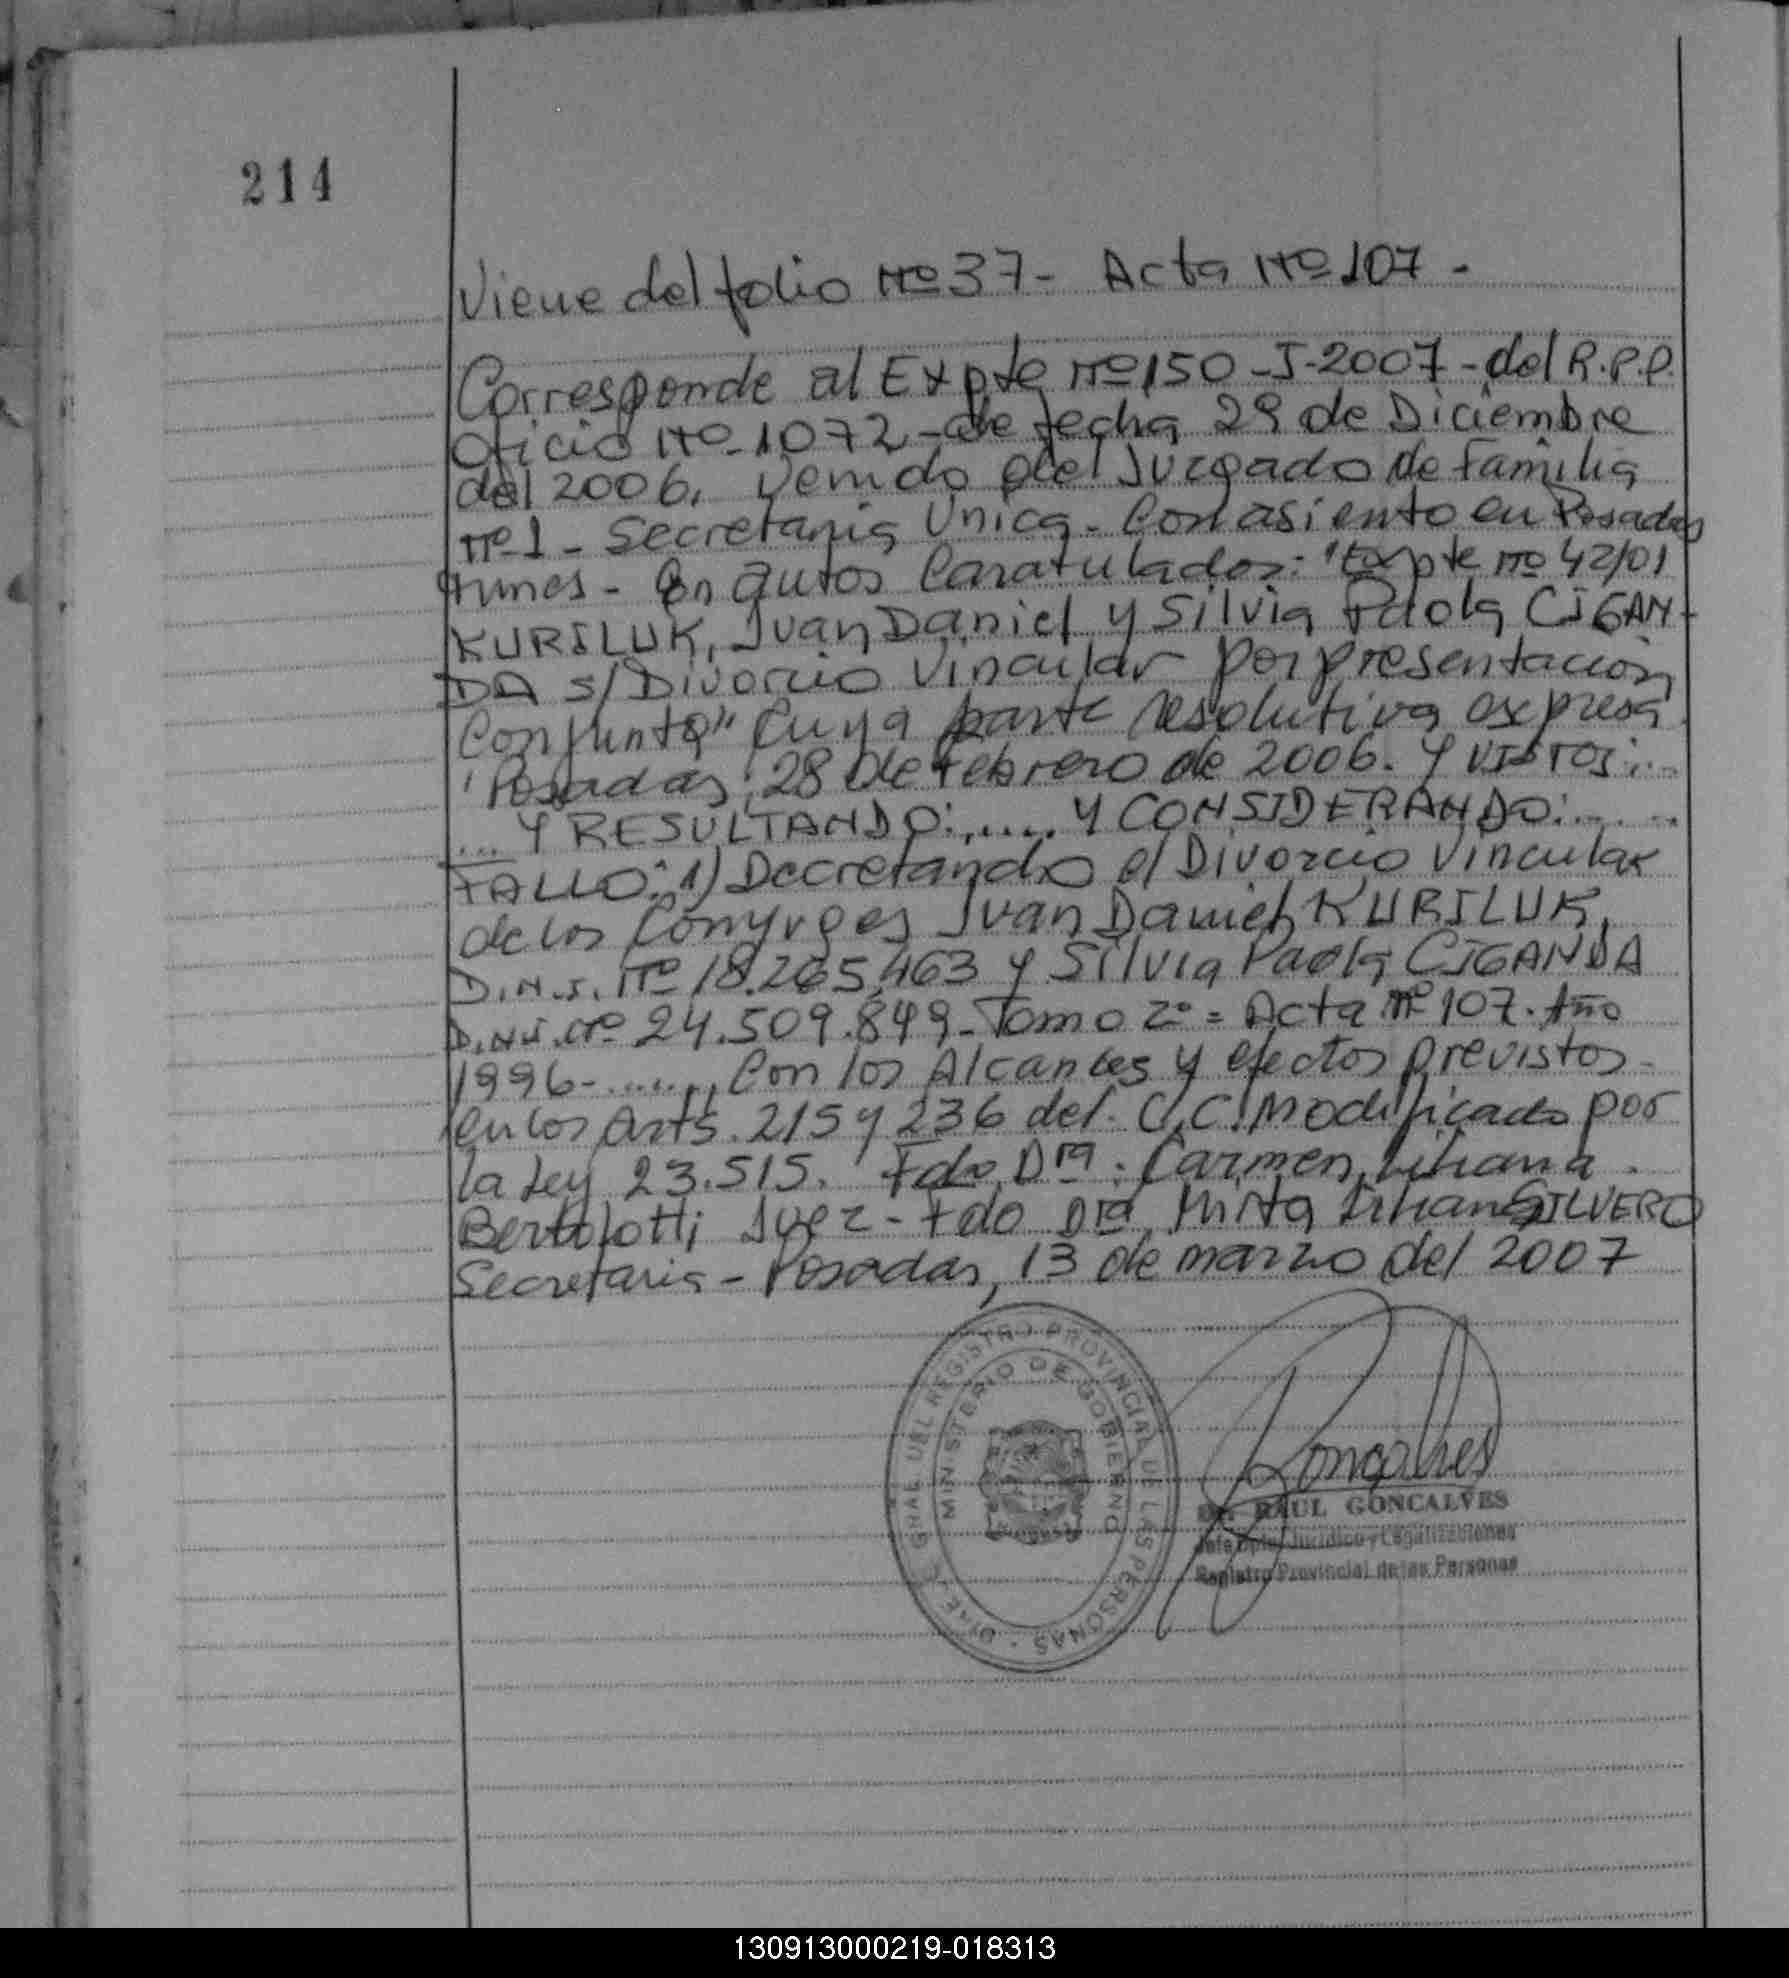 214
Viene del folio Nº 37 - Acta Nº 107 -
Corresponde al Expte Nº 150 - J - 2007 - del R.P.P.
Oficio Nº 1072 - de fecha 29 de Diciembre
del 2006, venido del Juzgado de Familia
Nº 1 - Secretaria Unica - Con asiento en Posadas
Mnes - En autos Caratulados: "Expte Nº 42/01
KURILUK, Juan Daniel y Silvia Paola CIGAN-
DA s/ Divorcio Vincular por presentación
Conjunta" Cuya parte resolutiva expresa
"Posadas, 28 de Febrero de 2006. Y VISTOS:...
... Y RESULTANDO:..... Y CONSIDERANDO:......
FALLO: 1) Decretando el Divorcio Vincular
de los Conyuges Juan Daniel KURILUK,
D.N.I. Nº 18.265.463 y Silvia Paola CIGANDA
D.N.I. Nº 24.509.849 - Tomo 2º = Acta Nº 107. Año
1996-......, Con los Alcances y efectos previstos
en los Arts. 215 y 236 del C.C. Modificado por
la Ley 23.515. Fdo Dra. Carmen Liliana
Bertolotti Juez - Fdo Dra. Mirta Lilian SILVERO
Secretaria - Posadas, 13 de marzo del 2007
DIREC. GRAL DEL REGISTRO PROVINCIAL DE LAS PERSONAS
MINISTERIO DE GOBIERNO
Goncalves
Dr. RAUL GONCALVES
Jefe Dpto. Juridico y Legalizaciones
Registro Provincial de las Personas
130913000219-018313